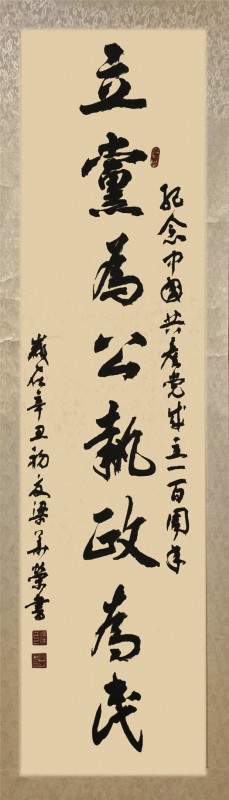 紀念中国共產党成立一百周年
立黨為公執政為民
歲在辛丑初夏梁華榮書